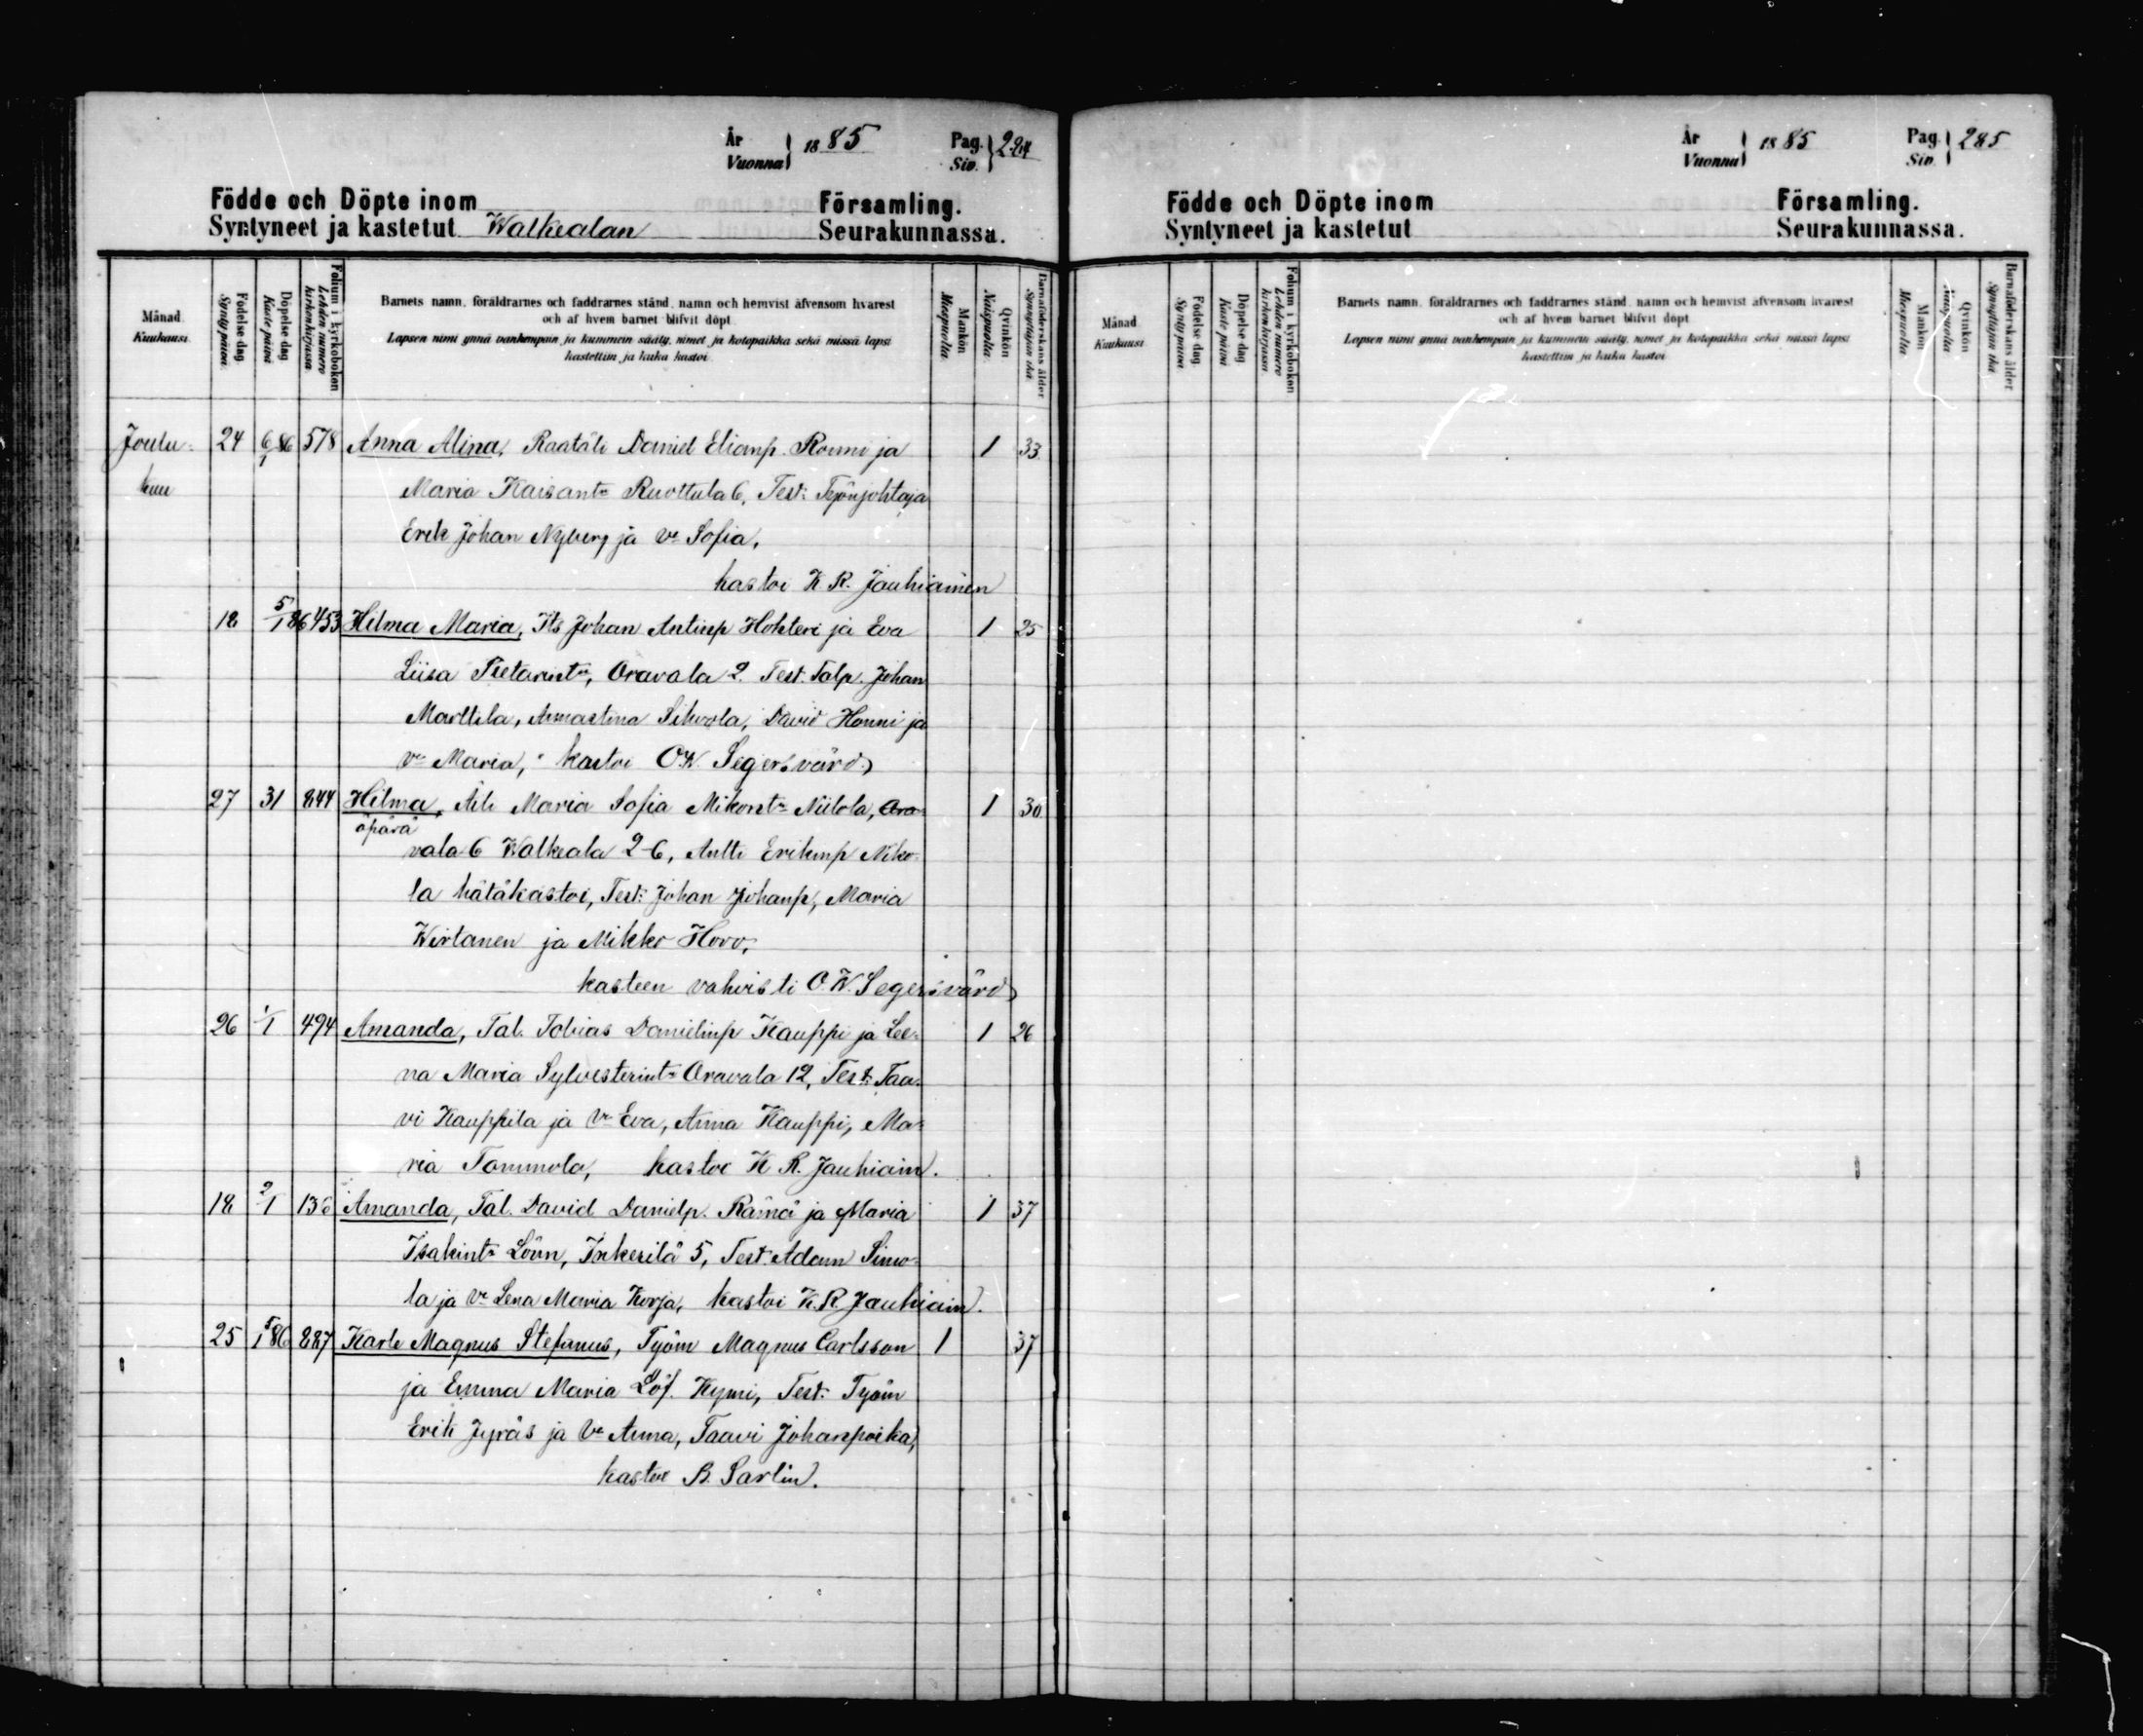 År
Vuonna 1885 Pag. Siv. 284
Födde och Döpte inom Församling.
Syntyneet ja kastetut Walkealan Seurakunnassa.
Månad Kuukausi
Födelse dag Synty päivä
Döpelse dag Kaste päivä
Folium i kyrkoboken Lehden numero kirkonkirjassa
Barnets namn, föräldrarnes och faddrarnes stånd, namn och hemvist äfvensom hvarest
och af hvem barnet blifvit döpt
Lapsen nimi ynnä vanhempain ja kummein sääty, nimet ja kotopaikka sekä missä lapsi
kastettiin ja kuka kastoi
Mankön Miespuolia
Qvinkön Naispuolia
Barnaföderskans ålder Synnyttäjän ikä
Joulu- 24 6/1 86 578 Anna Alina, Raatäli Daniel Eliamp. Ronni ja 1 33
kuu Maria Kaisant:r Ruottula 6, Test: Työnjohtaja
Erik Johan Nyberg ja v:o Sofia,
kastoi K. R. Jauhiainen
18 5/1 86 453 Hilma Maria, Its Johan Antinp Hokteri ja Eva 1 25
Liisa Pietarint:r, Oravala 2. Test. Talp. Johan
Marttila, Annastina Sihvola, David Honni ja
v:o Maria, kastoi O.W. Segersvärd
27 31 244 Hilma, Äiti Maria Sofia Mikont:r Niilola, Ora- 1 30
äpärä
vala 6 Walkeala 2-6, Antti Erikinp Niko-
la hätäkastoi, Test: Johan Johanp, Maria
Wirtanen ja Mikko Hovo,
kasteen vahvisti O. W. Segersvärd
26 1/1 494 Amanda, Tal. Tobias Danielinp Kauppi ja Lee- 1 26
na Maria Sylvesterint:r Oravala 12, Test: Taa-
vi Kauppila ja v:o Eva, Anna Kauppi, Ma-
ria Tommola, kastoi K R. Jauhiain.
18 2/1 136 Amanda, Tal. David Danielp. Rämä ja Maria 1 37
Isakint:r Löun, Inkerilä 5, Test. Adam Simo-
la ja v:o Lena Maria Korja, kastoi K. R. Jauhiain.
25 5/1 86 887 Karle Magnus Stefanus, Työm Magnus Carlsson 1 37
ja Emma Maria Löf. Kymi, Test: Työm
Erik Jyräs ja v:o Anna, Taavi Johanpoika,
kastoi B. Sarlin.
År
Vuonna 1885 Pag. Siv. 285
Födde och Döpte inom Församling.
Syntyneet ja kastetut Seurakunnassa.
Månad Kuukausi
Födelse dag Synty päivä
Döpelse dag Kaste päivä
Folium i kyrkoboken Lehden numero kirkonkirjassa
Barnets namn, föräldrarnes och faddrarnes stånd, namn och hemvist äfvensom hvarest
och af hvem barnet blifvit döpt
Lapsen nimi ynnä vanhempain ja kummein sääty, nimet ja kotopaikka sekä missä lapsi
kastettiin ja kuka kastoi
Mankön Miespuolia
Qvinkön Naispuolia
Barnaföderskans ålder Synnyttäjän ikä